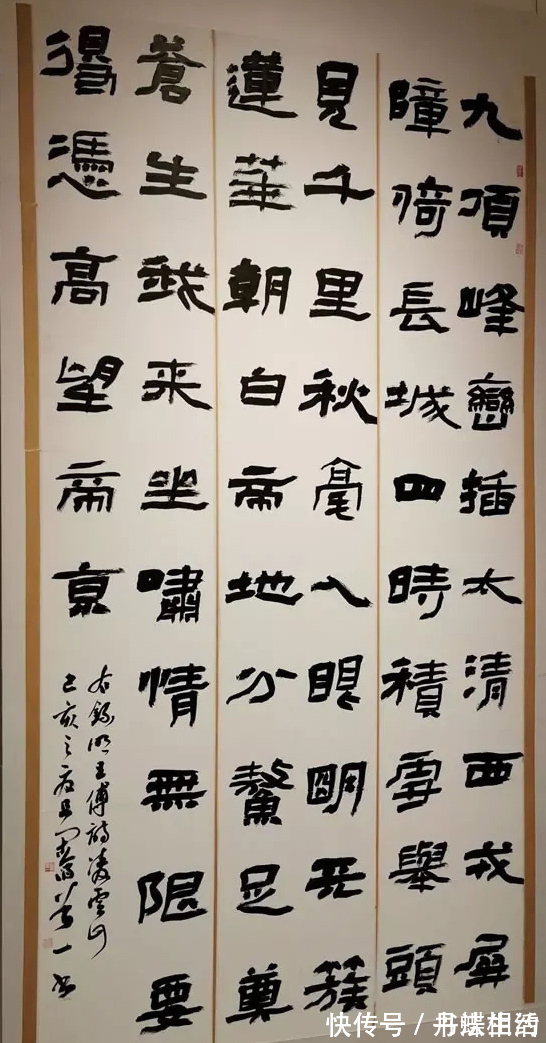 九頂峰巒插太清西戎屏
障倚長城四時積雪舉頭
見千里秋毫入眼明天簇
蓮華朝白帝地分鰲足奠
蒼生我来坐嘯情無限要
得憑高望帝京
右錄明王傅詩凌雲山
己亥之夏
快传号 /